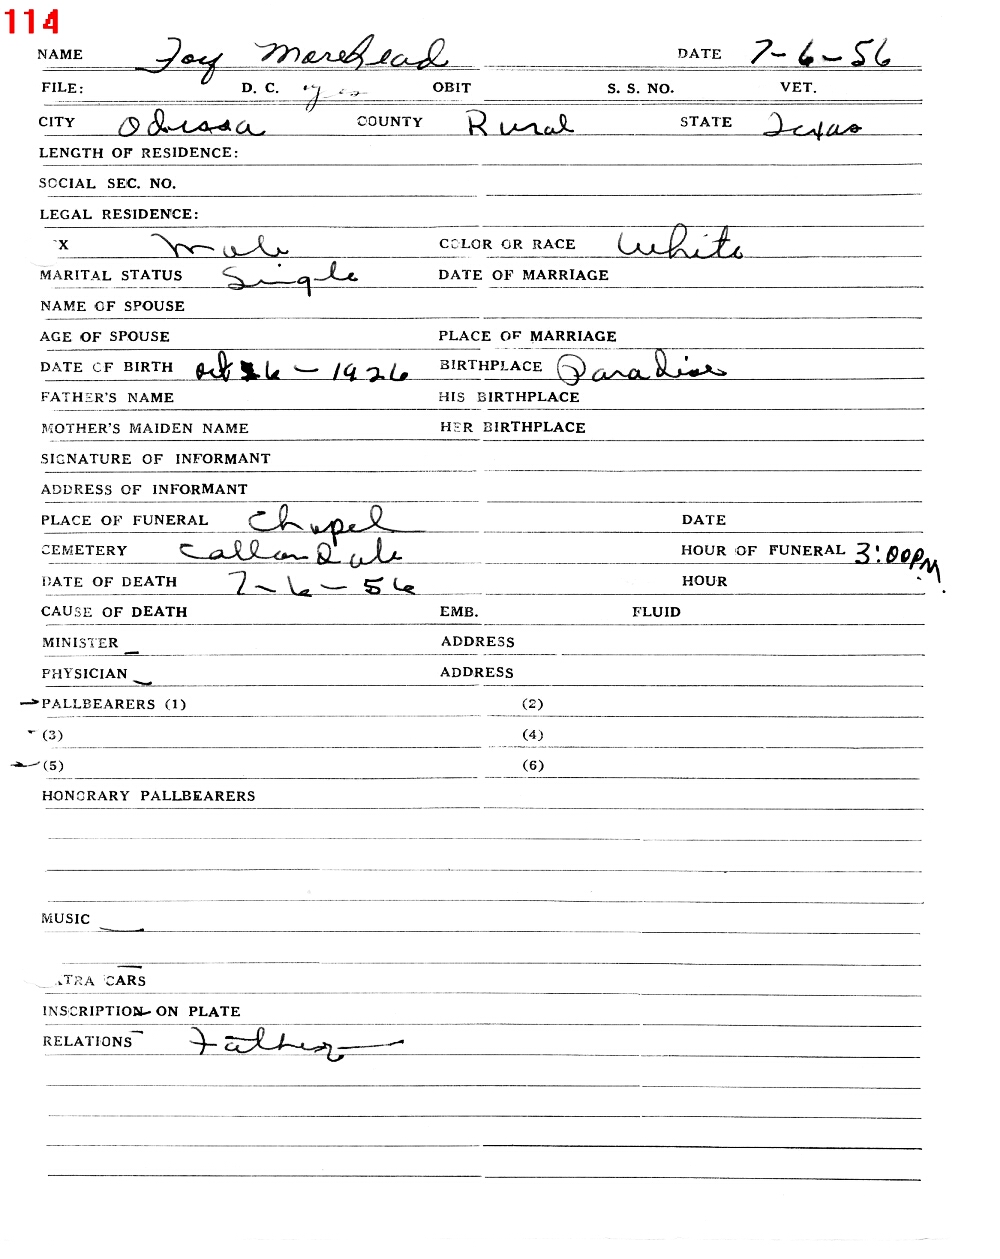 114
NAME Foy Morehead DATE 7-6-56
FILE: D. C. yes OBIT S. S. NO. VET.
CITY Odessa COUNTY Rural STATE Texas
LENGTH OF RESIDENCE:
SOCIAL SEC. NO.
LEGAL RESIDENCE:
X Male COLOR OR RACE White
MARITAL STATUS Single DATE OF MARRIAGE
NAME OF SPOUSE
AGE OF SPOUSE PLACE OF MARRIAGE
DATE OF BIRTH Oct 26 - 1926 BIRTHPLACE Paradise
FATHER'S NAME HIS BIRTHPLACE
MOTHER'S MAIDEN NAME HER BIRTHPLACE
SIGNATURE OF INFORMANT
ADDRESS OF INFORMANT
PLACE OF FUNERAL Chapel DATE
CEMETERY HOUR OF FUNERAL 3:00PM.
DATE OF DEATH 7-6-56 HOUR
CAUSE OF DEATH EMB. FLUID
MINISTER ADDRESS
PHYSICIAN ADDRESS
PALLBEARERS (1) (2)
(3) (4)
(5) (6)
HONORARY PALLBEARERS
MUSIC
TRA CARS
INSCRIPTION ON PLATE
RELATIONS Father